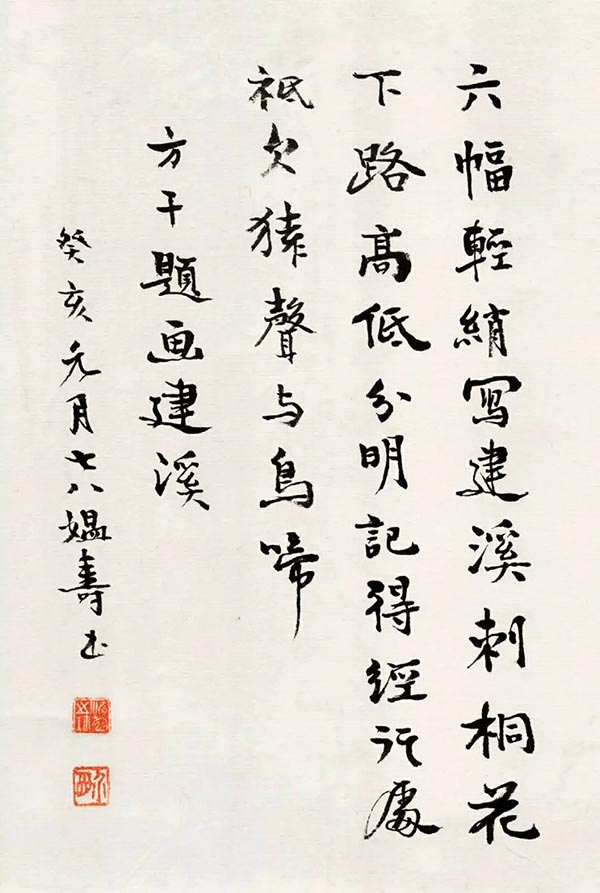 六幅輕綃写建溪刺桐花
下路高低分明記得經行處
祇欠猿聲与鳥啼
方干題画建溪
癸亥元月七八媪壽书